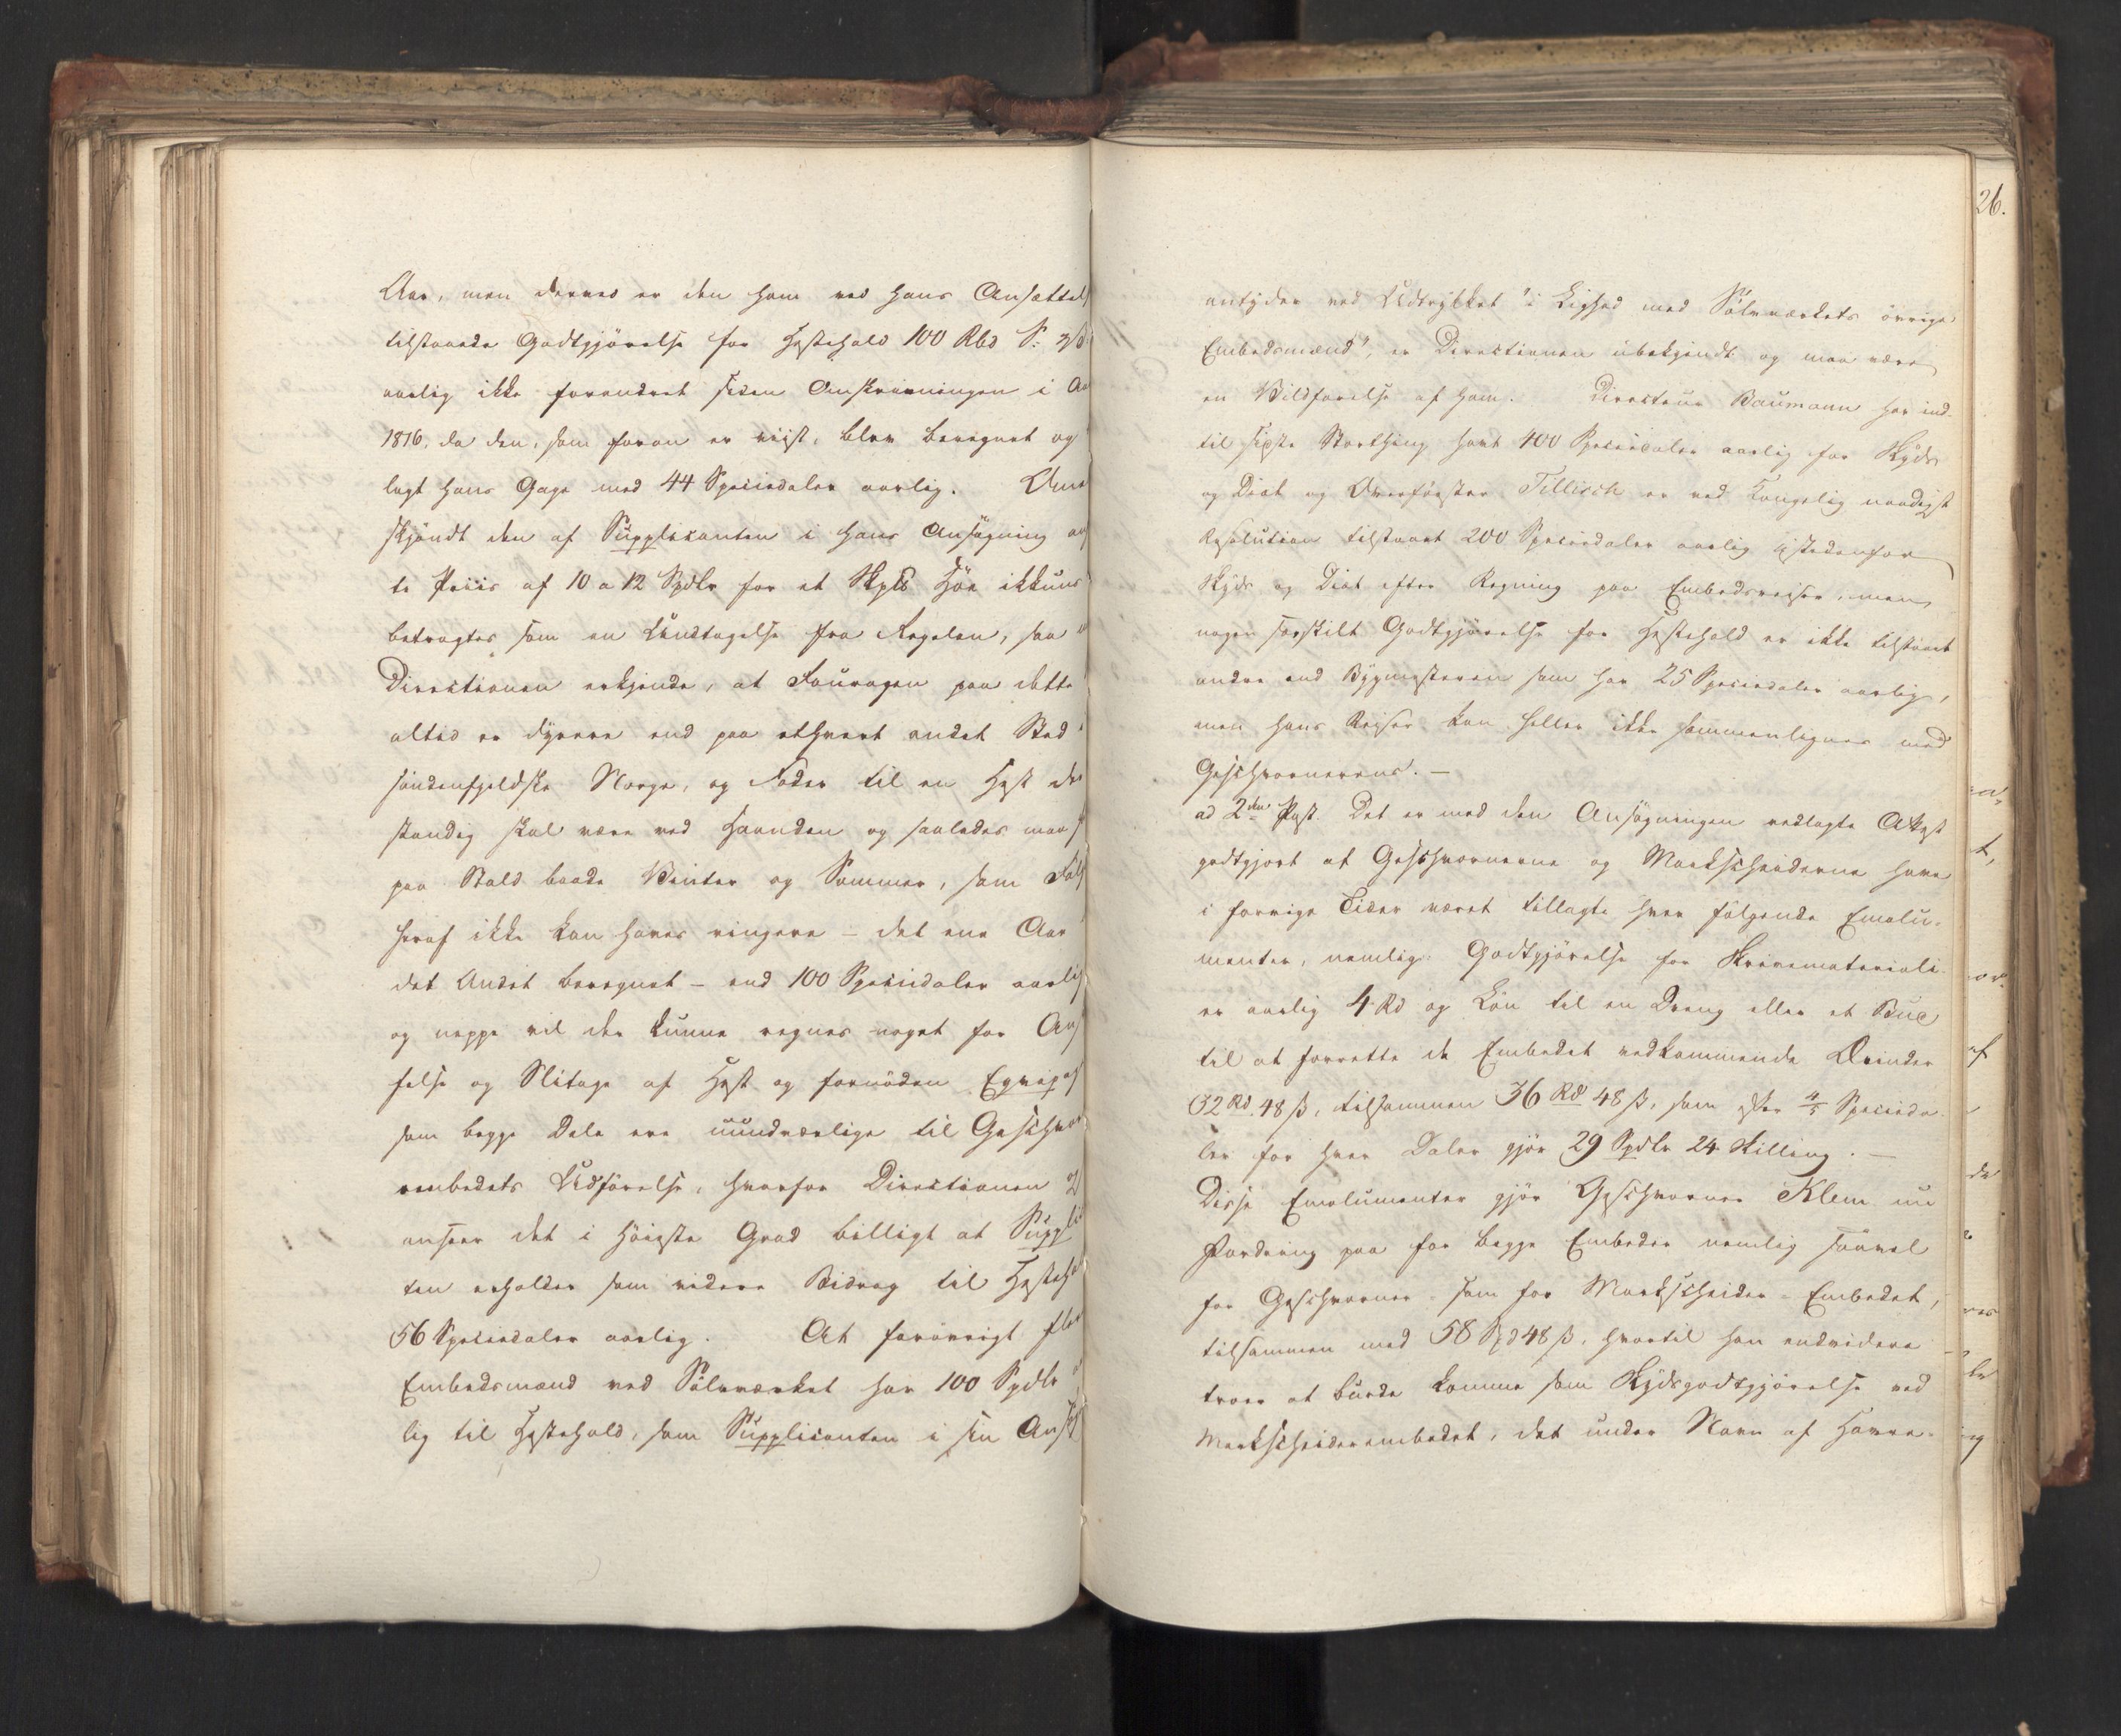 Aar, men derved er den ham ved hans Ansættels
tilstaaede Godtgjörelse for Hestehold 100 Rbd S.
aarlig ikke forandret siden Omskrivningen i Aa
1816, da den, som foran er viist, blev beregnet og
lagt hans Gage med 44 Speciedaler aarlig.
skjöndt den af Supplicanten i hans Ansögning
te Priis af 10 a 12 Spdlr for et Skpd Höe ikkuns
betragtes som en Undtagelse fra Regelen, saa
Directionen erkjende, at Fouragen paa dette
altid er dyrere end paa ethvert andet Sted
söndenfjeldske Norge, og Foder til en Hest der
standig skal være ved Haanden og saaledes maa
paa Stald baade Vinter og Sommer, som
heraf ikke kan haves ringere - det ene Aar
det Andet beregnet - end 100 Speciedaler aarlig
og neppe vil der kunne regnes noget for
felse og Slitage af Hest og fornöden Eqvipa
som begge Dele ere uundværlige til Geschwor
embedets Udförelse, hvorfor Directionen
anseer det i höieste Grad billigt at Suppli
ten erholder som videre Bidrag til Hesteho
56 Speciedaler aarlig. At forövrigt flere
Embedsmænd ved Sölvværket har 100 Spdlr
lig til Hestehold, som Supplicanten i sin Ansög
26.
antyder ved Udtrykket "i Lighed med Sölvværkets övrige
Embedsmænd", er Directionen ubekjendt og maa være
en Vildfarelse af ham. Directeur Baumann har ind-
til sidste Storthing havt 400 Speciedaler aarlig for Skyds
og Diæt og Overförster Tillisch er ved Kongelig naadigst
Resolution tilstaaet 200 Speciedaler aarlig istedenfor
Skyds og Diæt efter Regning paa Embedsreiser, men
nogen særskilt Godtgjörelse for Hestehold er ikke tilstaaet
andre end Bygmesteren som har 25 Speciedaler aarlig,
men hans Reiser kan heller ikke sammenlignes med
Geschwornerens. -
ad 2den Post. Det er med den Ansögningen vedlagte Attest
godtgjort at Geschwornerne og Markscheiderne have
i forrige Tider været tillagte hver fölgende Emolu-
menter, nemlig: Godtgjörelse for Skrivemateriali-
er aarlig 4 Rd og Lön til en Dreng eller et Bud
til at forrette de Embedet vedkommende Ærinder
32 Rd 48 ß, tilsammen 36 Rd 48 ß, som efter 4/5 Specieda-
ler for hver Daler gjör 29 Spdlr 24 Skilling. -
Disse Emolumenter gjör Geschworner Klem nu
Fordring paa for begge Embeder nemlig saavel
for Geschworner- som for Markscheider-Embedet,
tilsammen med 58 Spd 48 ß, hvortil han endvidere
troer at burde komme som Skydsgodtgjörelse ved
Markscheiderembedet, det under Navn af Havre-